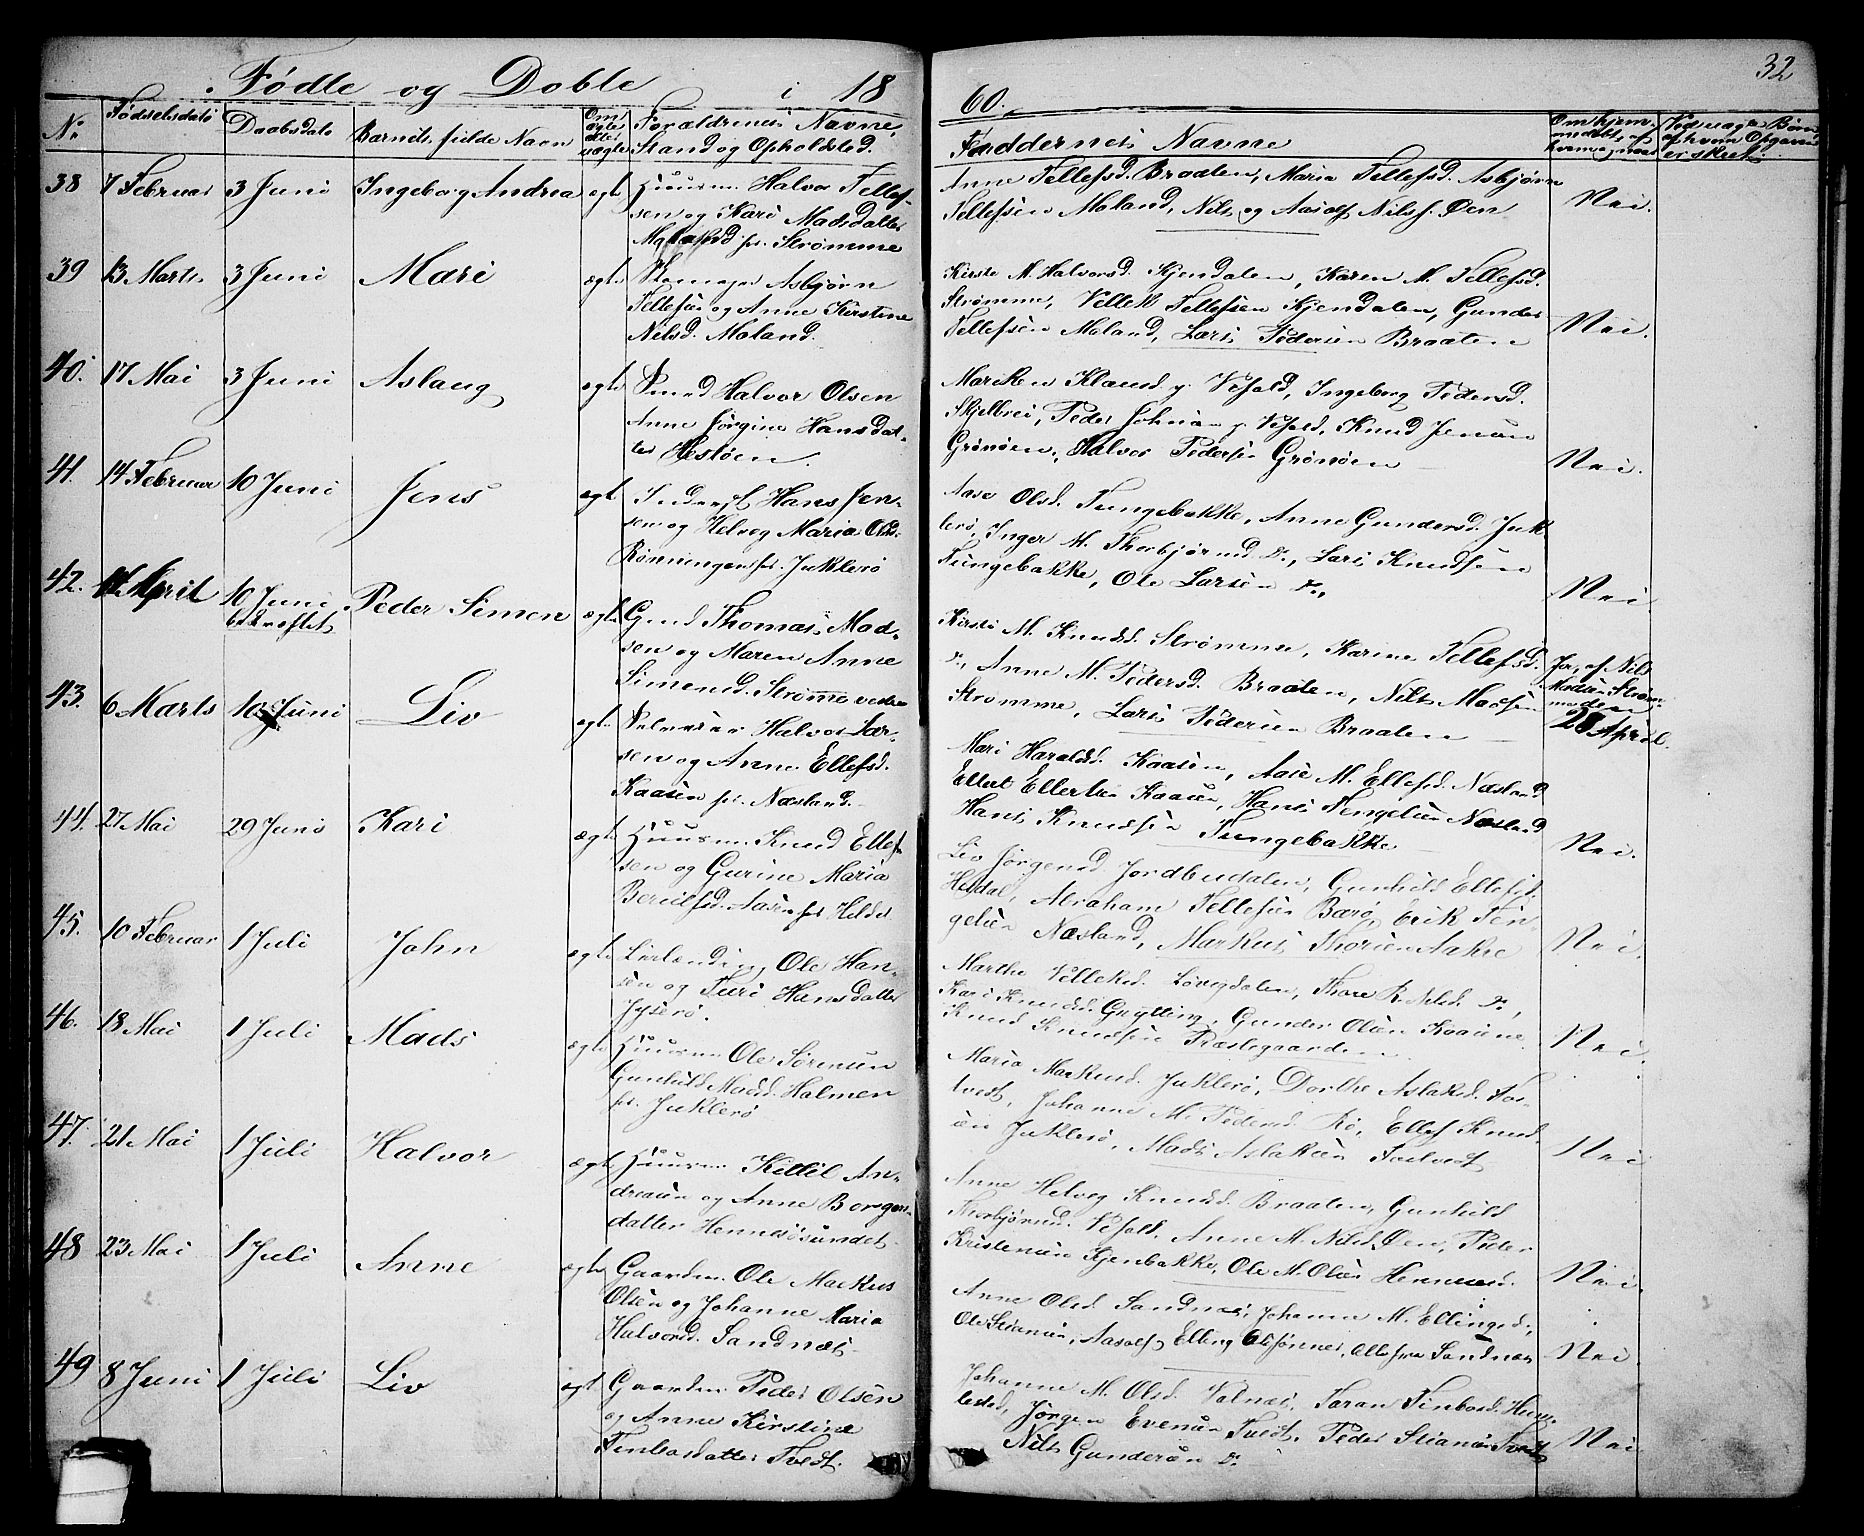 Fødte og Døbte i 1860.
32
No
Fødselsdato
Daabsdato
Barnets fulde Navn
Om ægte eller uægte
Forældrenes Navne, Stand og Opholdsted.
Faddernes Navne
Om hjemmedøbt, af hvem og naar
Ved uægte Børn af hvem Opgaven er skeet.
38 7 Februar 3 Juni Ingeborg Andrea ægte Huusm. Halvor Tellef-
sen og Kari Madsdatter
Moland p. Strømme
Anne Tellefsd. Braaten, Maria Tellefsd. Asbjørn
Tellefsen Moland, Nils og Aasolf Nilss. Øen
Nei.
39 13 Marts 3 Juni Mari ægte Asbjørn
Tellefsen og Anne Kirstine
Nilsd. Moland.
Kirste M. Halvorsd. Kjendalen, Karen M. Tellefsd.
Strømme, Villek Tellefsen Kjendalen, Gunder
Tellefsen Moland, Lars Pedersen Braaten
Nei.
40. 17 Mai 3 Juni Aslaug ægte Smed Halvor Olsen
Anne Jørgine Hansdat-
ter Hestøen.
Mariken Klausd. Vefald, Ingeborg Pedersd.
Skjelbrei, Peder Johnsen Vefald, Knud Jensen
Grønøen, Halvor Pedersen Grønøen
Nei.
41. 14 Februar 10 Juni Jens ægte Hans Jen-
sen og Helveg Maria Olsd.
Rønningen p. Juklerø
Aase Olsd. Tungebakke, Anne Gundersd. Juk-
lerø, Inger M. Thorbjørnsd. Do., Lars Knudsen
Tungebakke, Ole Larsen Do.,
Nei
42. April 10 Juni
bekræftet Peder Simon ægte Gmd. Thomas Mad-
sen og Maren Anne
Simensd. Strømme vestre
Kirste M. Knudsd. Strømme, Karine Tellefsd.
Do., Anne M. Pedersd. Braaten, Nils Madsen
Strømme, Lars Pedersen Braaten
Ja, af Nils
Madsen Strøm-
me den
28 April.
43. 6 Marts 10 Juni Liv ægte Halvor Lar-
sen og Anne Ellefsd.
Kaasen p. Næsland.
Mari Haraldsd. Kaasen, Aase M. Ellefsd. Næsland
Ellert Ellertsen Kaasen, Hans Næsland,
Hans Knudsen Tungebakke
Nei.
44. 27 Mai 29 Juni Kari ægte Huusm. Knud Ellef-
sen og Gurine Maria
Berulfsd. Aasen p. Heldal
Liv Jørgensd. Jordbudalen, Gunhild Ellefsd.
Heldal, Abraham Tellefsen Barø, Erik Ten-
gelsen Næsland, Markus Thorsen Aakre
Nei.
45. 10 Februar 1 Juli John ægte Leilænding Ole Han-
sen og Turi Hansdatter
Jyserø.
Marthe Villeksd. Løvigdalen, Thore R. Nilsd. Do.,
Kari Knudsd. Grytting, Gunder Olsen Kaasene
Knud Knudsen Præstegaarden.
Nei.
46. 18 Mai 1 Juli Mads ægte Huusm. Ole Sørensen
Gunhild Madsd. Holmen
p. Juklerø
Maria Markusd. Juklerø, Dorthe Aslaksd. Fos-
tvedt, Johanne M. Pedersd. Rø, Ellef Knud-
sen Juklerø, Mads Aslaksen Fostvedt
Nei
47. 21 Mai 1 Juli Halvor ægte Huusm. Kittil An-
dreasen og Anne Borgers-
datter Hennsøsundet.
Anne Helveg Knudsd. Braaten, Gunhild
Thorbjørnsd. Vefald, Anne M. Nilsd. Øen, Peder
Kristensen Kjenbakke, Ole M. Olsen
Nei.
48 23 Mai 1 Juli Anne ægte Gaardm. Ole Markus
Olsen og Johanne Maria
Halvorsd. Sandnæs.
Anne Olsd. Sandnæs, Johanne M. Ellingsd.,
Ole Stiansen, Aasolf, Elling Olesønner, alle fra Sandnæs
Nei.
49 8 Juni 1 Juli Liv ægt Gaardm. Peder Olsen
og Anne Kirstine
Finbosdatter Tvedt.
Johanne M. Olsd. Valnæs, Saran Finbosd. Hum-
lestad, Jørgen Evensen Tvedt, Peder Stiansen Tvedt
Nils Gundersen Do.
Nei